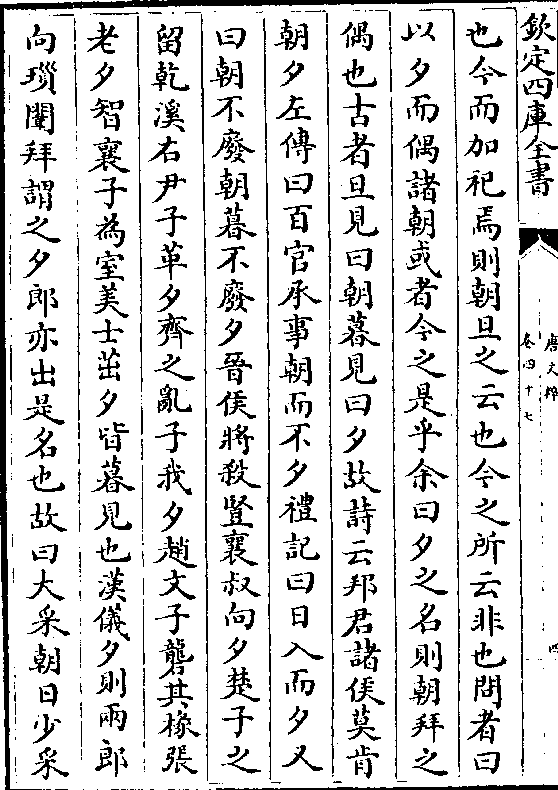 欽定四庫全書
唐文粹
卷四十七
四
也今而加祀焉則朝旦之云也今之所云非也問者曰
以夕而偶諸朝或者今之是乎余曰夕之名則朝拜之
偶也古者旦見曰朝暮見曰夕故詩云邦君諸侯莫肯
朝夕左傳曰百官承事朝而不夕禮記曰日入而夕又
曰朝不廢朝暮不廢夕晉侯將殺豎襄叔向夕楚子之
留乾溪右尹子革夕齊之亂子我夕趙文子礱其椽張
老夕智襄子為室美士茁夕皆暮見也漢儀夕則兩郎
向瑣闈拜謂之夕郎亦出是名也故曰大采朝日少采